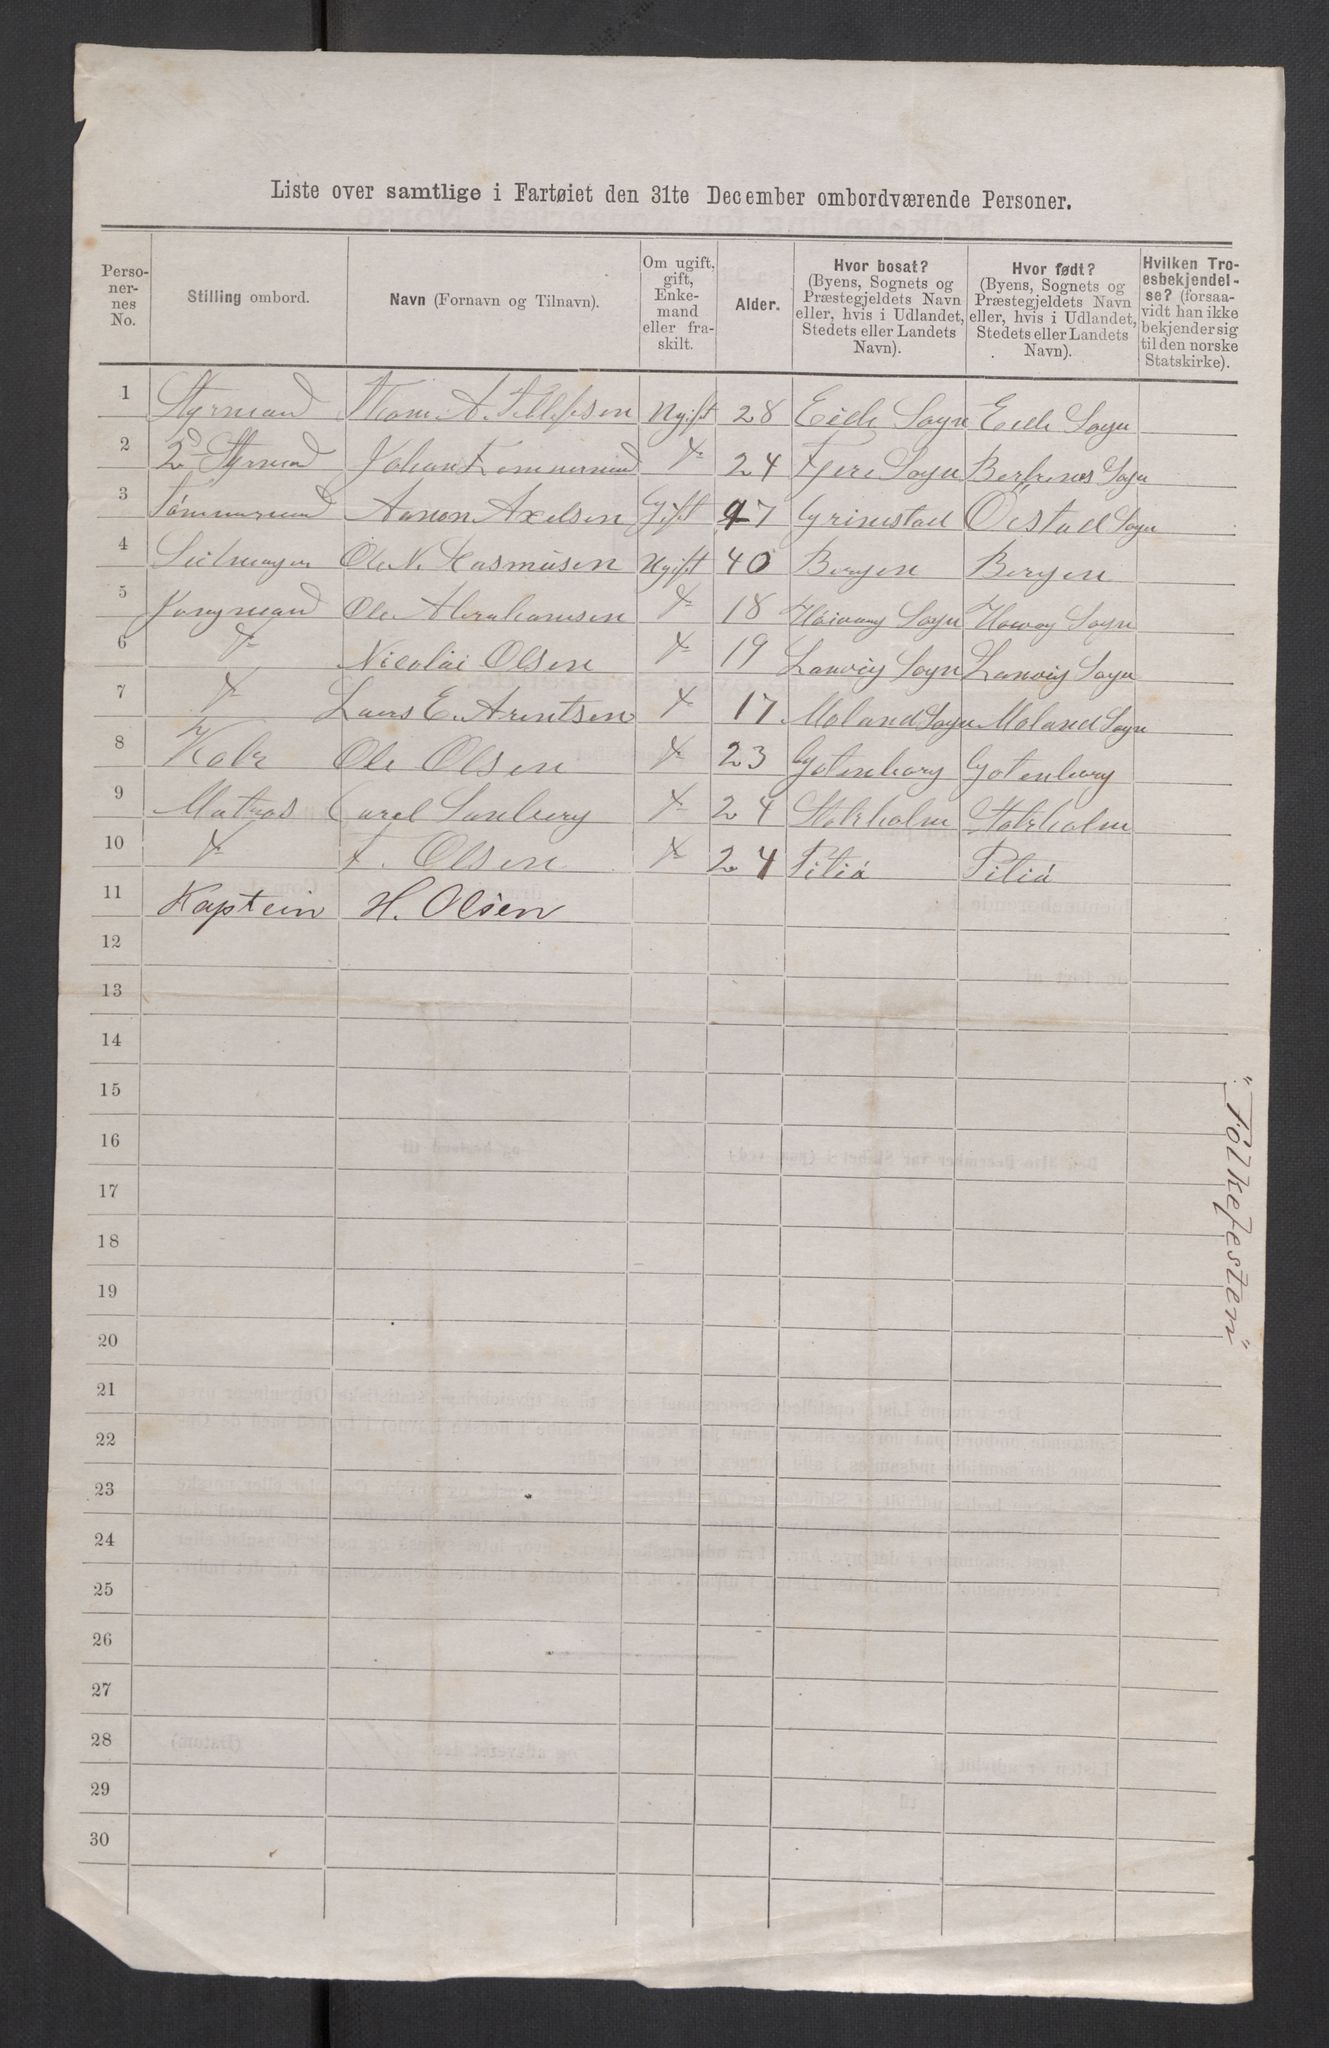 Liste over samtlige i Fartøiet den 31te December ombordværende Personer.
Personernes No. | Stilling ombord. | Navn (Fornavn og Tilnavn). | Om ugift, gift, Enkemand eller fraskilt. | Alder. | Hvor bosat? (Byens, Sognets og Præstegjeldets Navn eller, hvis i Udlandet, Stedets eller Landets Navn). | Hvor født? (Byens, Sognets og Præstegjeldets Navn eller, hvis i Udlandet, Stedets eller Landets Navn). | Hvilken Troesbekjendelse? (forsaavidt han ikke bekjender sig til den norske Statskirke).
1 Styrmand A. Tellefsen Ugift 28 Eide Sogn Eide Sogn
2 2d Styrmand Johan Tommersund 24 Fjere Sogn Sogn
3 Tømmermand Aanon Axelsen Gift 47 Grimstad Öiestad Sogn
4 Seilmager Ole N. Rasmusen Ugift 40 Bergen Bergen
5 Jongmand Ole Abrahamsen 18 Høivaag Sogn Høivaag Sogn
6 Nicolai Olsen 19 Lanvig Sogn Lanvig Sogn
7 Laurs E. Arentsen 17 Moland Sogn Moland Sogn
8 Kok Ole Olsen 23 Gotenborg Gotenborg
9 Matros Carel Sanberg 24 Stokholm Stokholm
10 F. Olsen 24 Pitiå Pitiå
11 Kaptein H. Olsen
12
13
14
15
16
17
18
19
20
21
22
23
24
25
26
27
28
29
30
"Folkefesten"